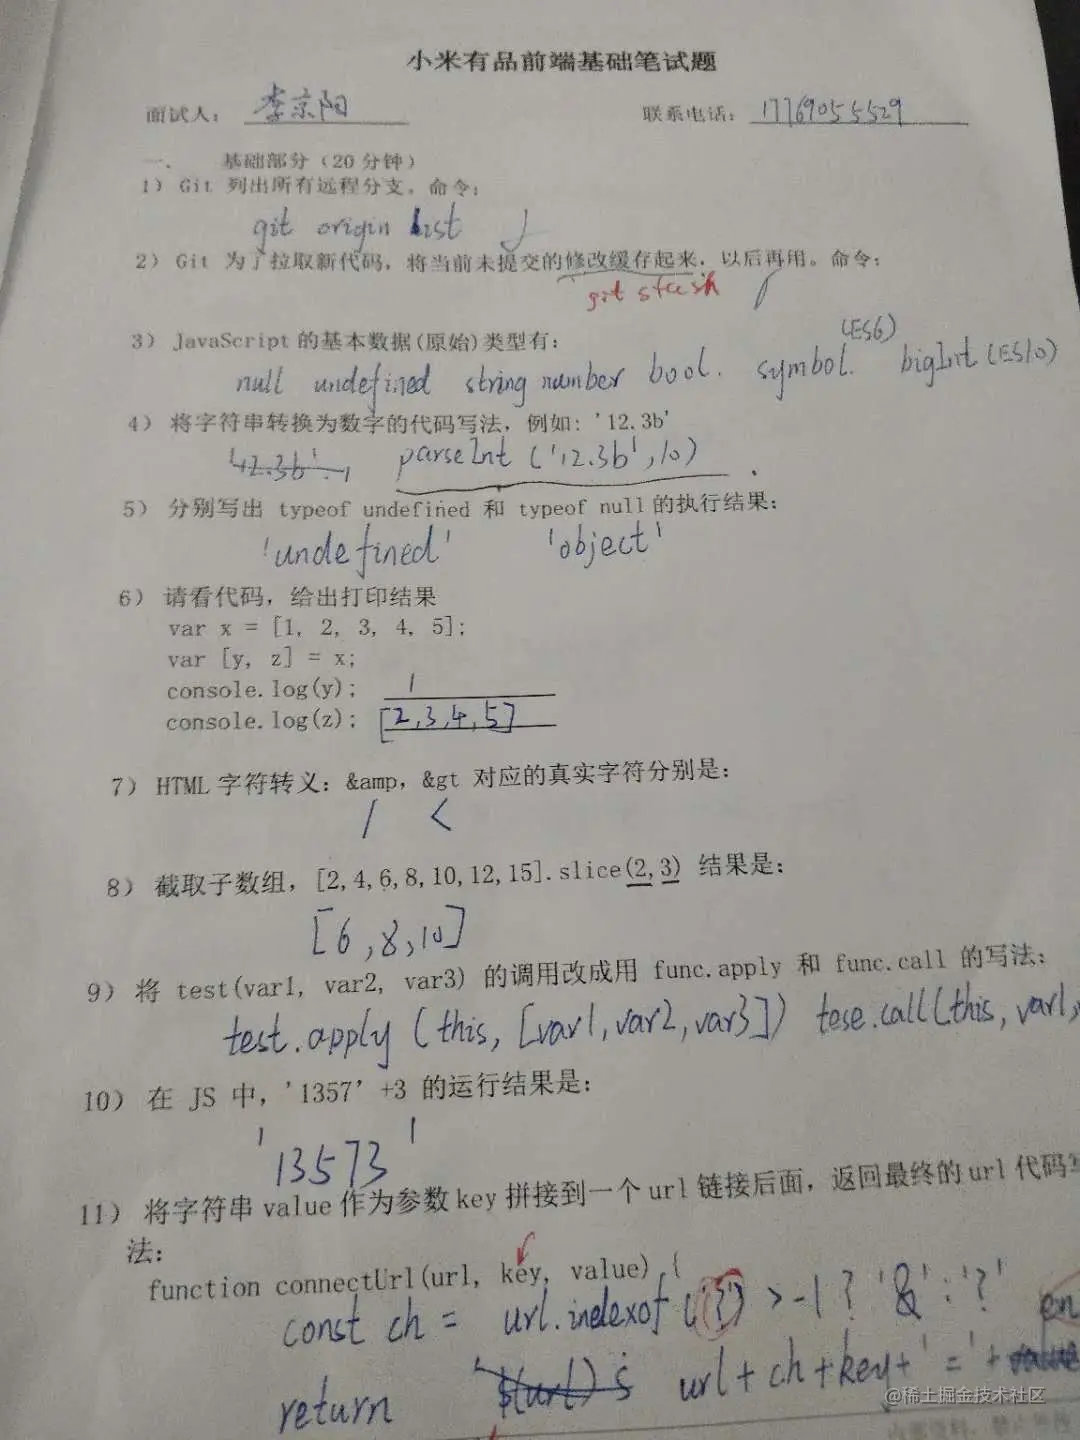 小米有品前端基础笔试题
面试人： 李京阳 联系电话： 17769055529
一． 基础部分（20分钟）
1） Git 列出所有远程分支。命令：
git origin list
2） Git 为了拉取新代码，将当前未提交的修改缓存起来，以后再用。命令：
git stash
3） JavaScript 的基本数据(原始)类型有：
null undefined string number bool. symbol. (ES6) bigInt (ES10)
4） 将字符串转换为数字的代码写法，例如: '12.3b'
parseInt ('12.3b',10)
5） 分别写出 typeof undefined 和 typeof null 的执行结果：
'undefined' 'object'
6） 请看代码，给出打印结果
var x = [1, 2, 3, 4, 5];
var [y, z] = x;
console.log(y); 1
console.log(z); [2,3,4,5]
7） HTML 字符转义：&amp，&gt 对应的真实字符分别是：
/ <
8） 截取子数组，[2,4,6,8,10,12,15].slice(2,3) 结果是：
[6,8,10]
9） 将 test(var1, var2, var3) 的调用改成用 func.apply 和 func.call 的写法：
test.apply (this, [var1,var2,var3]) tese.call(this, var1,
10） 在 JS 中，'1357' +3 的运行结果是：
'13573'
11） 将字符串 value 作为参数 key 拼接到一个 url 链接后面，返回最终的 url 代码写
法：
function connectUrl(url, key, value) {
const ch = url.indexof ('?') >-1 ? '&' : '?' en
return url+ch+key+'='+
@稀土掘金技术社区